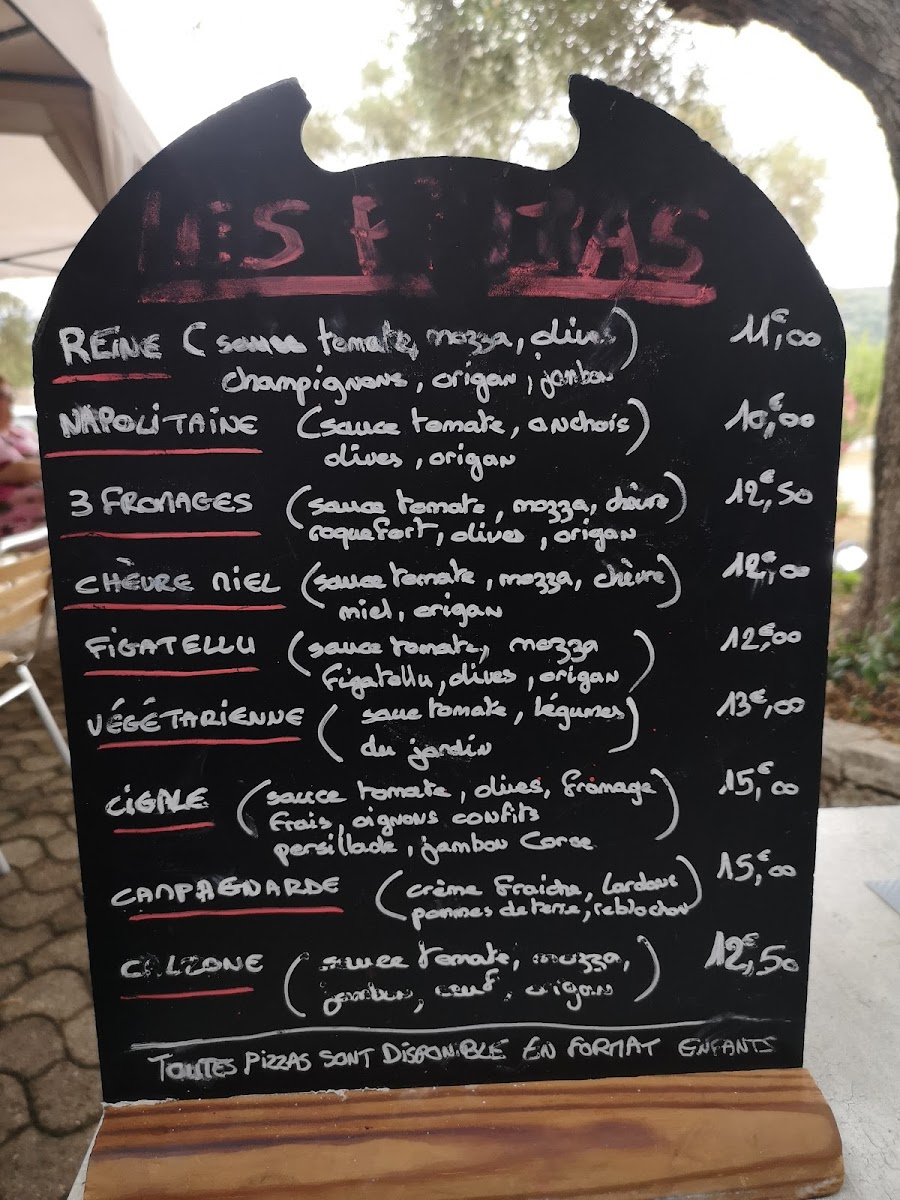 LES PIZZAS
REINE (sauce tomate, mozza, olives) 11,€00
champignons, origan, jambon
NAPOLITAINE (sauce tomate, anchois) 10,€00
olives, origan
3 FROMAGES (sauce tomate, mozza, chèvre) 12,€50
roquefort, olives, origan
CHÈVRE MIEL (sauce tomate, mozza, chèvre) 12,€00
miel, origan
FIGATELLU (sauce tomate, mozza) 12,€00
figatellu, olives, origan
VÉGÉTARIENNE (sauce tomate, légumes) 13€,00
du jardin
CIGALE (sauce tomate, olives, fromage) 15,€00
frais, oignons confits
persillade, jambon Corse
CAMPAGNARDE (crème fraiche, lardons) 15,€00
pommes de terre, reblochon
CALZONE (sauce tomate, mozza,) 12,€50
jambon, œuf, origan
TOUTES PIZZAS SONT DISPONIBLE EN FORMAT ENFANTS